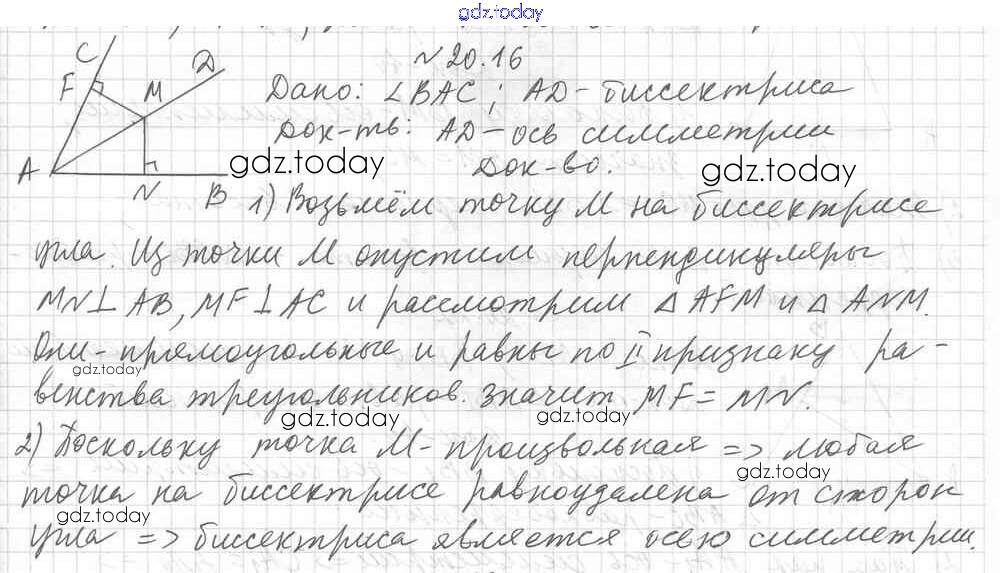 gdz.today
N 20.16
C
F
M
D
A
N
B
Дано: ∠BAC; AD-биссектриса
Док-ть: AD-ось симметрии
gdz.today
Док-во.
gdz.today
1) Возьмём точку M на биссектрисе
угла. Из точки M опустим перпендикуляры
MN⊥AB, MF⊥AC и рассмотрим △AFM и △ANM.
Они-прямоугольные и равны по II признаку ра-
gdz.today
венства треугольников. Значит MF=MN.
gdz.today
gdz.today
2) Поскольку точка M-произвольная => любая
gdz.today
точка на биссектрисе равноудалена от сторон
gdz.today
угла => биссектриса является осью симметрии.